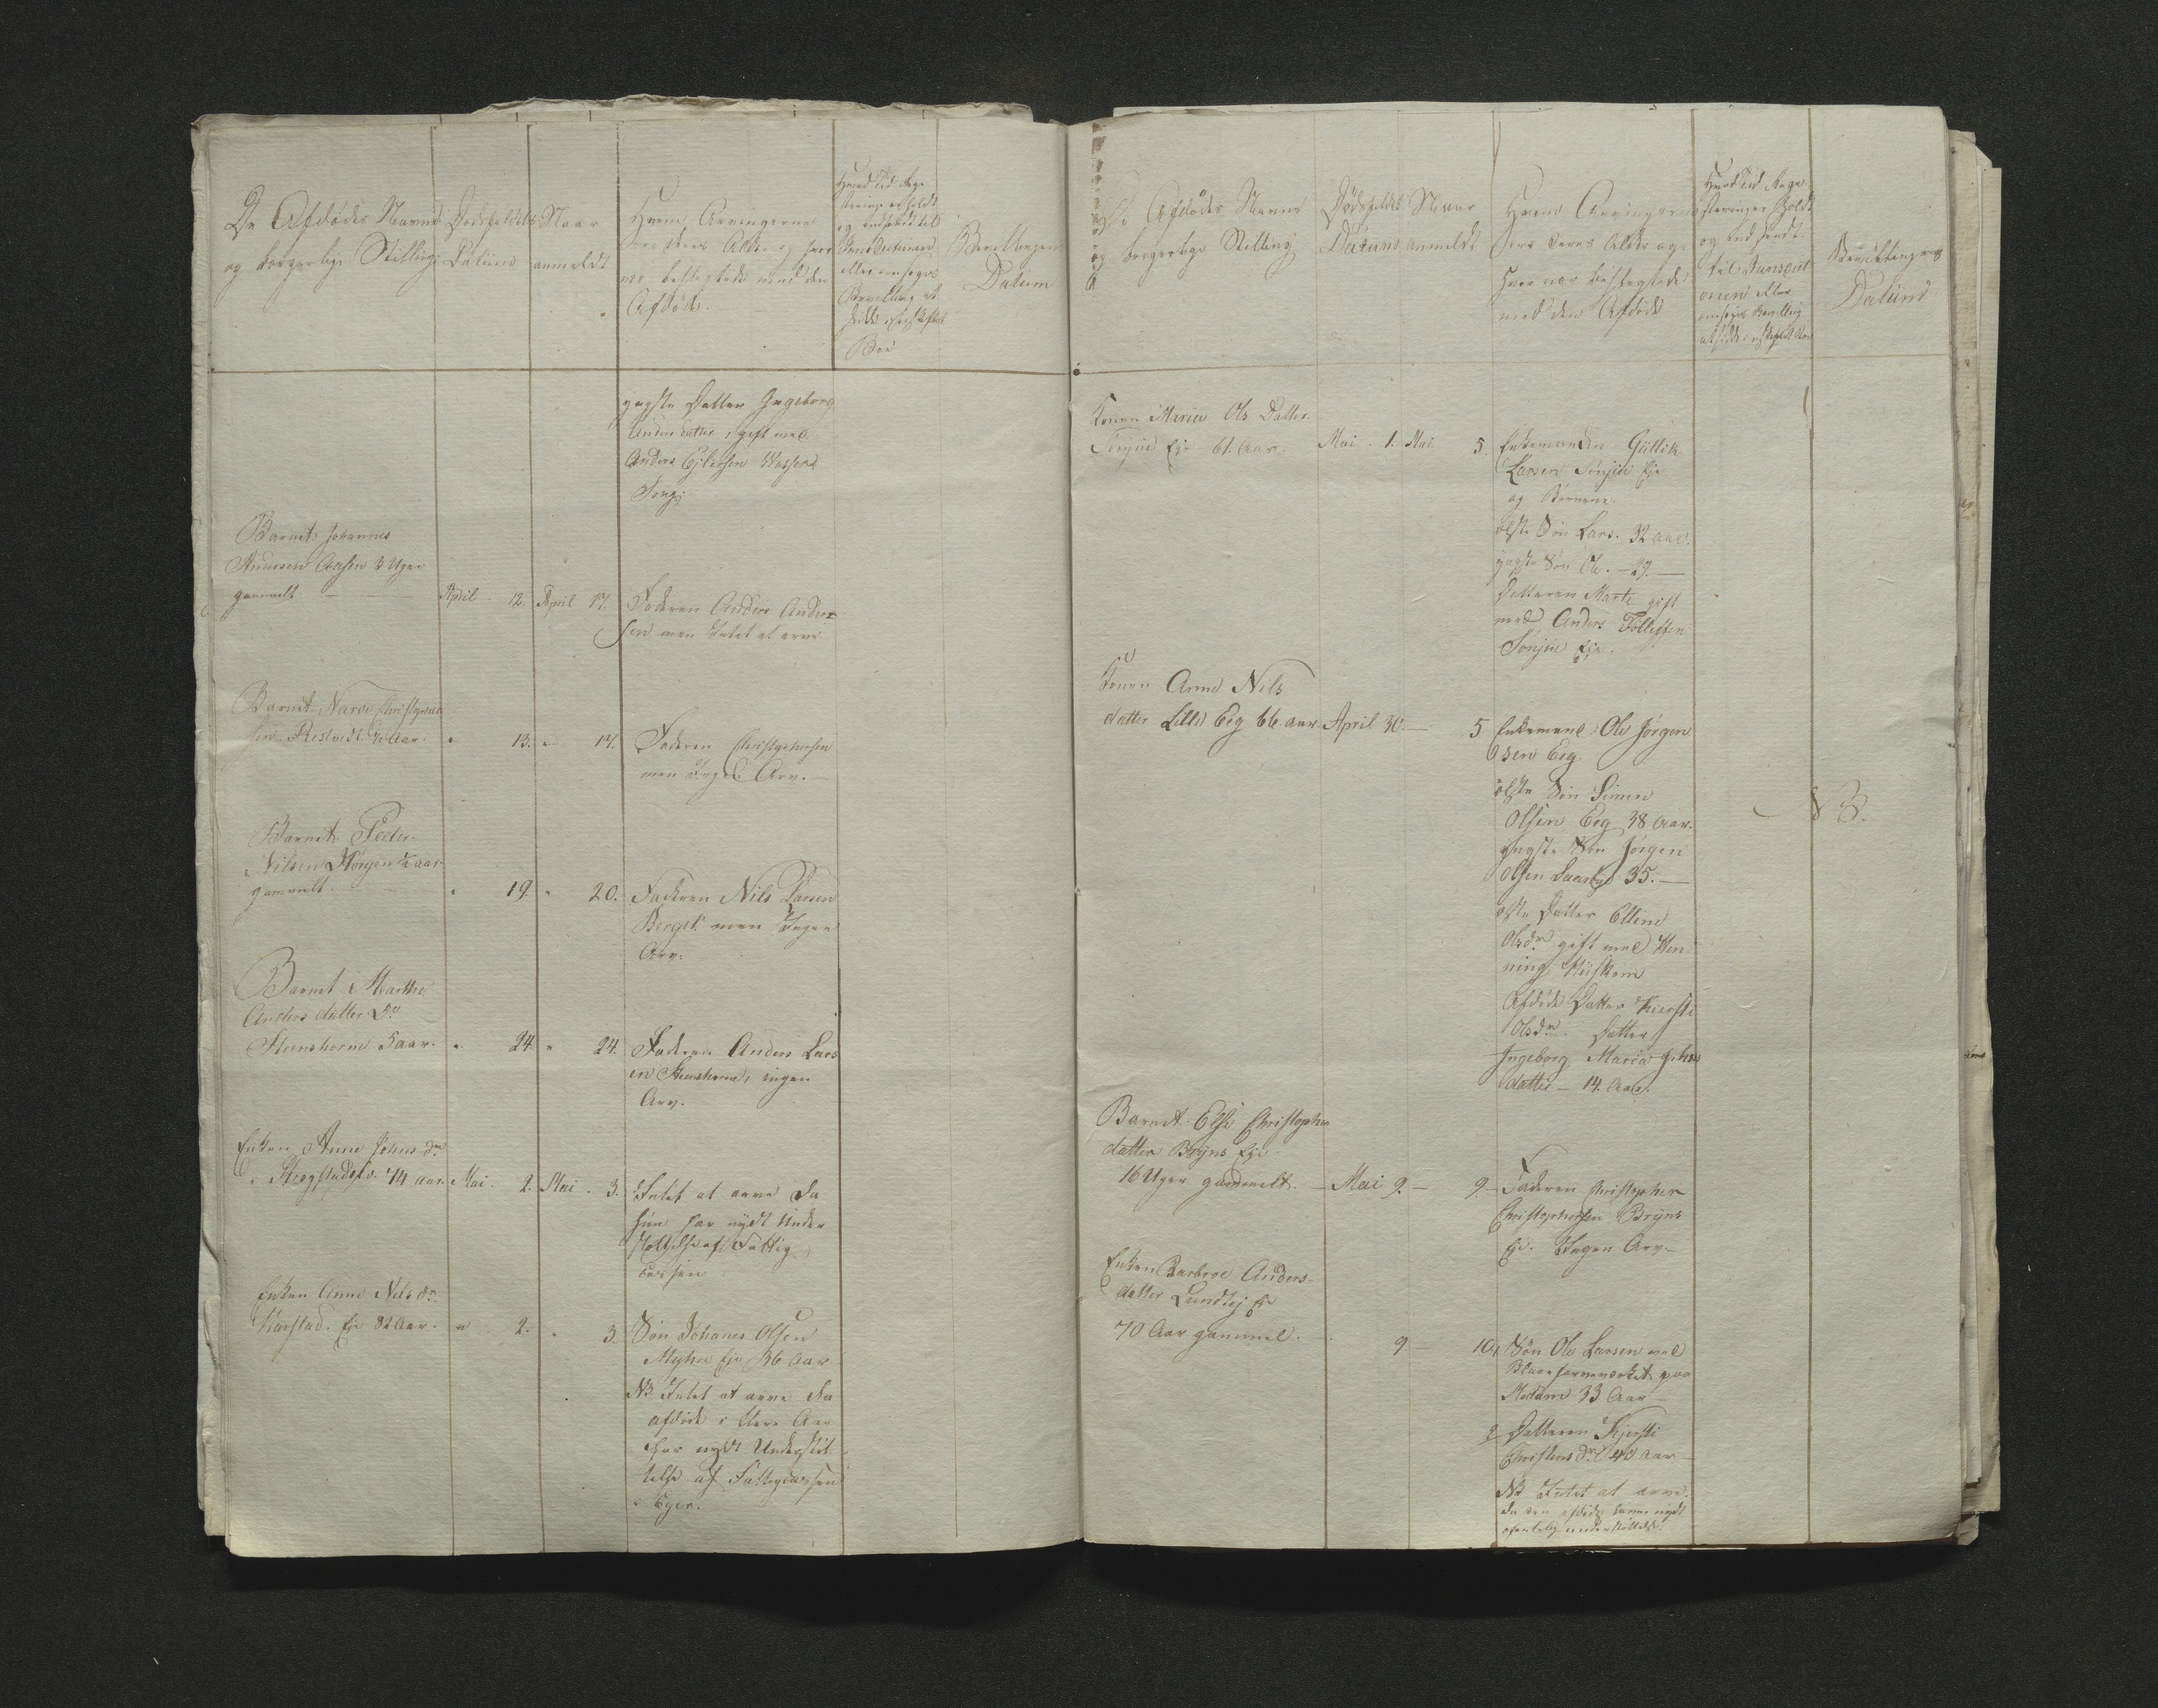 De Afdødes Navne
og borgerlige Stilling
Dødsfaldets
Datum
Naar
anmeldt
Hvem Arvingerne
ere deres Alder og hvor
nær beslegtede med den
Afdøde.
Hvad Tid Regi-
og indsendt til
eller ansøgt
Bevilling at
sidde i uskiftet
Boe
Bevillingens
Datum
yngste Datter Ingeborg
Andersdatter, gift med
Anders
Barnet Johannes
Andersen Aasen 3 Uger
gammelt — — April 12. April 17. Faderen Anders Ander-
sen men Intet at arve
Barnet Narve Christophers
" 13. " 17. Faderen Christophersen
men Ingen Arv. —
Barnet Peder
Nilsen ½ aar
gammelt. " 19. " 20. Faderen Nils Larsen
Berget men Ingen
Arv.
Barnet Marthe
Andersdatter
Steenshorne 5 aar. " 24. " 24. Faderen Anders Lars
en Steenshorne, ingen
Arv.
Enken Anne Johns dr
74 aar. Mai. 2. Mai. 3. Intet at arve da
hun har nydt Under
støttelse af Fattig
cassen
Enken Anne Nils dr.
Eje 82 Aar. " 2. " 3. Søn Johanes Olsen
Myhre Eje 36 Aar
NB Intet at arve da
afdøde i flere Aar
har nydt Understøt
telse af Fattigcassen
i Eger.
De Afdødes Navne
og borgerlige Stilling
Dødsfaldets
Datum
Naar
anmeldt
Hvem Arvingerne
ere deres Alder og
hvor nær beslegtede
med den Afdøde
Hvad Tid Regi-
steringen Holdt
og indsendt
til
eller
ansøgt Bevilling
at sidde i uskiftet Boe
Bevillingens
Datum
Konen Maria Ols Datter
Eje 61. Aar. Mai. 1. Mai 5. Enkemanden Gullik
Larsen Eje
og Børnene.
elste Søn Lars. 32 aar.
yngste Søn Ole. — 29. —
Datteren Marte gift
med Anders Tollefsen
Eje.
Konen Anne Nils
datter Lille Eeg 66 aar. April 30. — 5 Enkemand Ole Jørgen
sen Eeg.
elste Søn Simen
Olsen Eeg 38 Aar.
yngste Søn Jørgen
Olsen 35. —
elste Datter Elline
Olsdr gift med Hen
ning
Afdøde Datter Kiersti
Olsdr. Datter
Ingeborg Maria Johns
datter — 14. Aar.
Barnet Else Christopher
datter Bryns Eje
16 Uger gammelt. — Mai 9. — 9 Faderen Christopher
Christophersen Bryns
Eje. Ingen Arv.—
Enken Barbroe Anders-
datter Lundtej Eje
70 Aar gammel. — 9 — 10. 1 Søn Ole Larsen ved
Blaafarveværket paa
Modum 33 Aar
2 Datteren Kjersti
Christens dr. 40 Aar —
NB Intet at arve.
da den afdøde havde nydt
ofentelig understøttelse